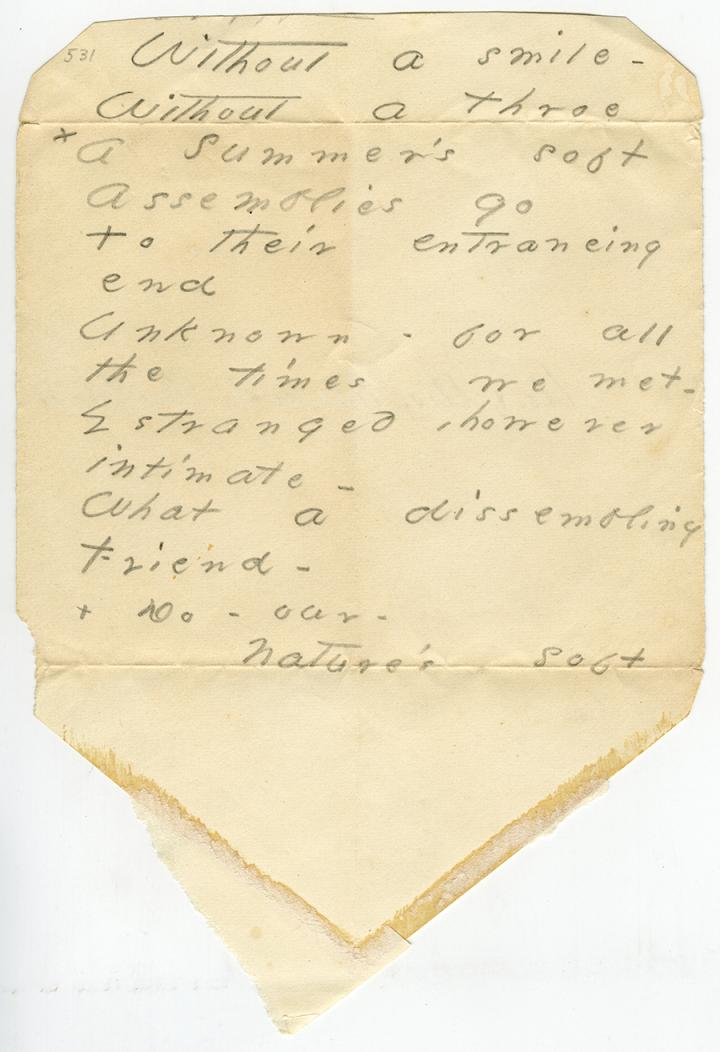 531
Without a smile -
Without a throe
+ A Summer's soft
Assemblies go
to their entrancing
end
Unknown - for all
the times we met -
Estranged, however
intimate -
What a dissembling
Friend -
+ Do - our -
nature's soft